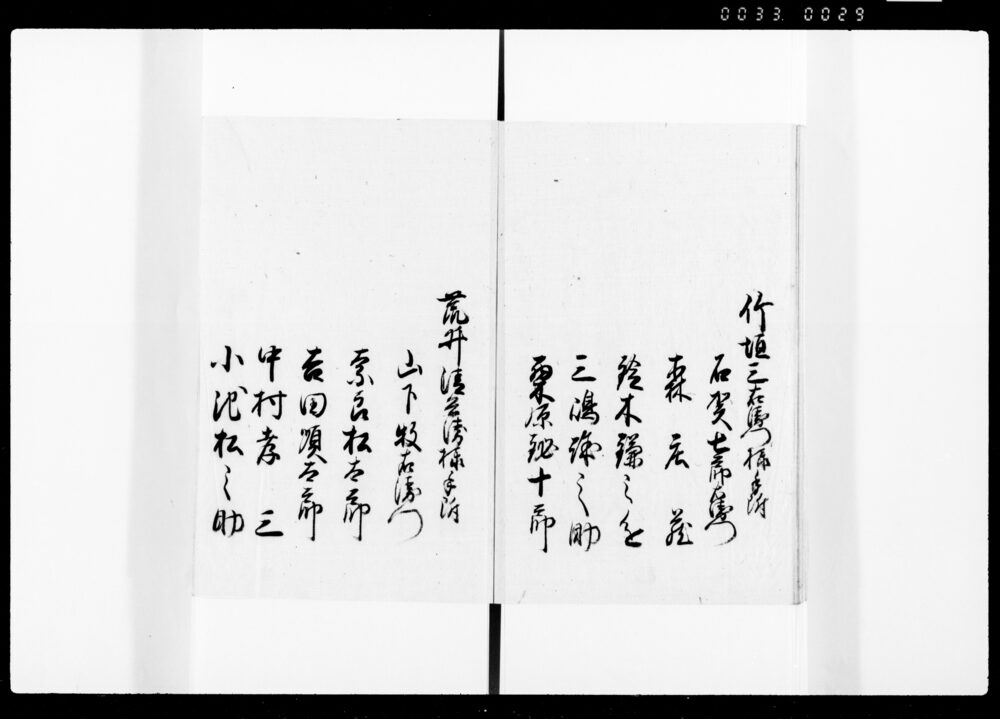 0033. 0029
竹垣三右衛門様手附
石賀七郎右衛門
森 庄蔵
鈴木鎌之進
三嶋 之助
栗原 十郎
荒井清兵衛様手附
山下牧右衛門
奈良松太郎
吉田順太郎
中村孝三
小池松之助